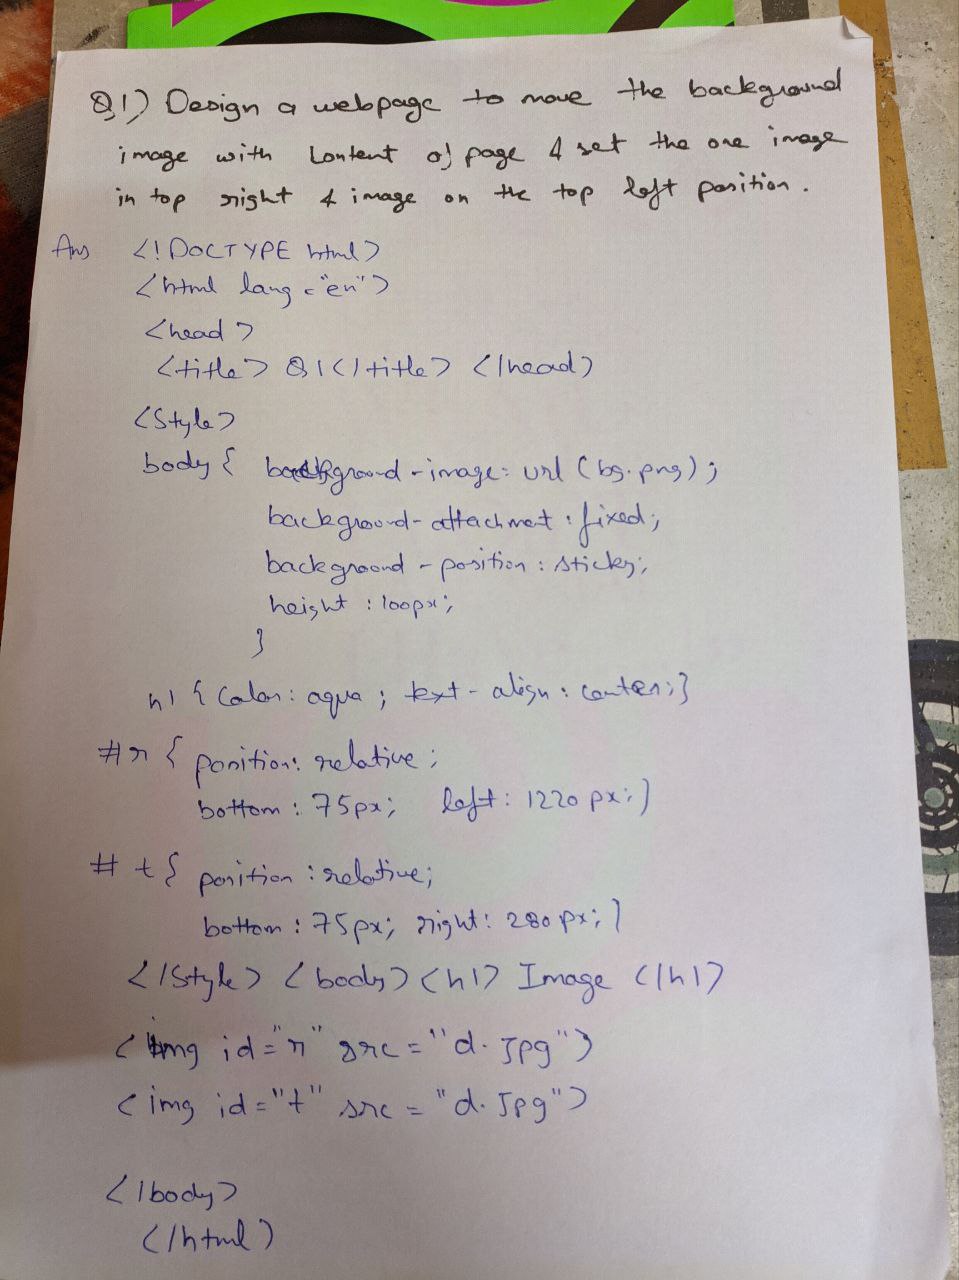 Q1) Design a webpage to move the background
image with Content of page & set the one image
in top right & image on the top left position.
Ans <!DOCTYPE html>
<html lang="en">
<head>
<title> Q1</title> </head>
<Style>
body { background-image: url (bg.png);
background-attachment: fixed;
background-position: sticky;
height: 100px;
}
h1 { Color: aqua; text-align: center;}
#r { position: relative;
bottom: 75px; left: 1220 px;}
# t { position: relative;
bottom: 75px; right: 280 px;}
</Style> <body> <h1> Image </h1>
<img id="r" src="d.Jpg">
<img id="t" src="d.Jpg">
</body>
</html>